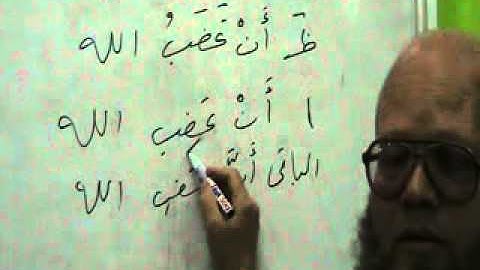 ظ أَنْ غَضَبُ الله
ا أَنْ غَضِب الله
الباقى أَنَّ الله